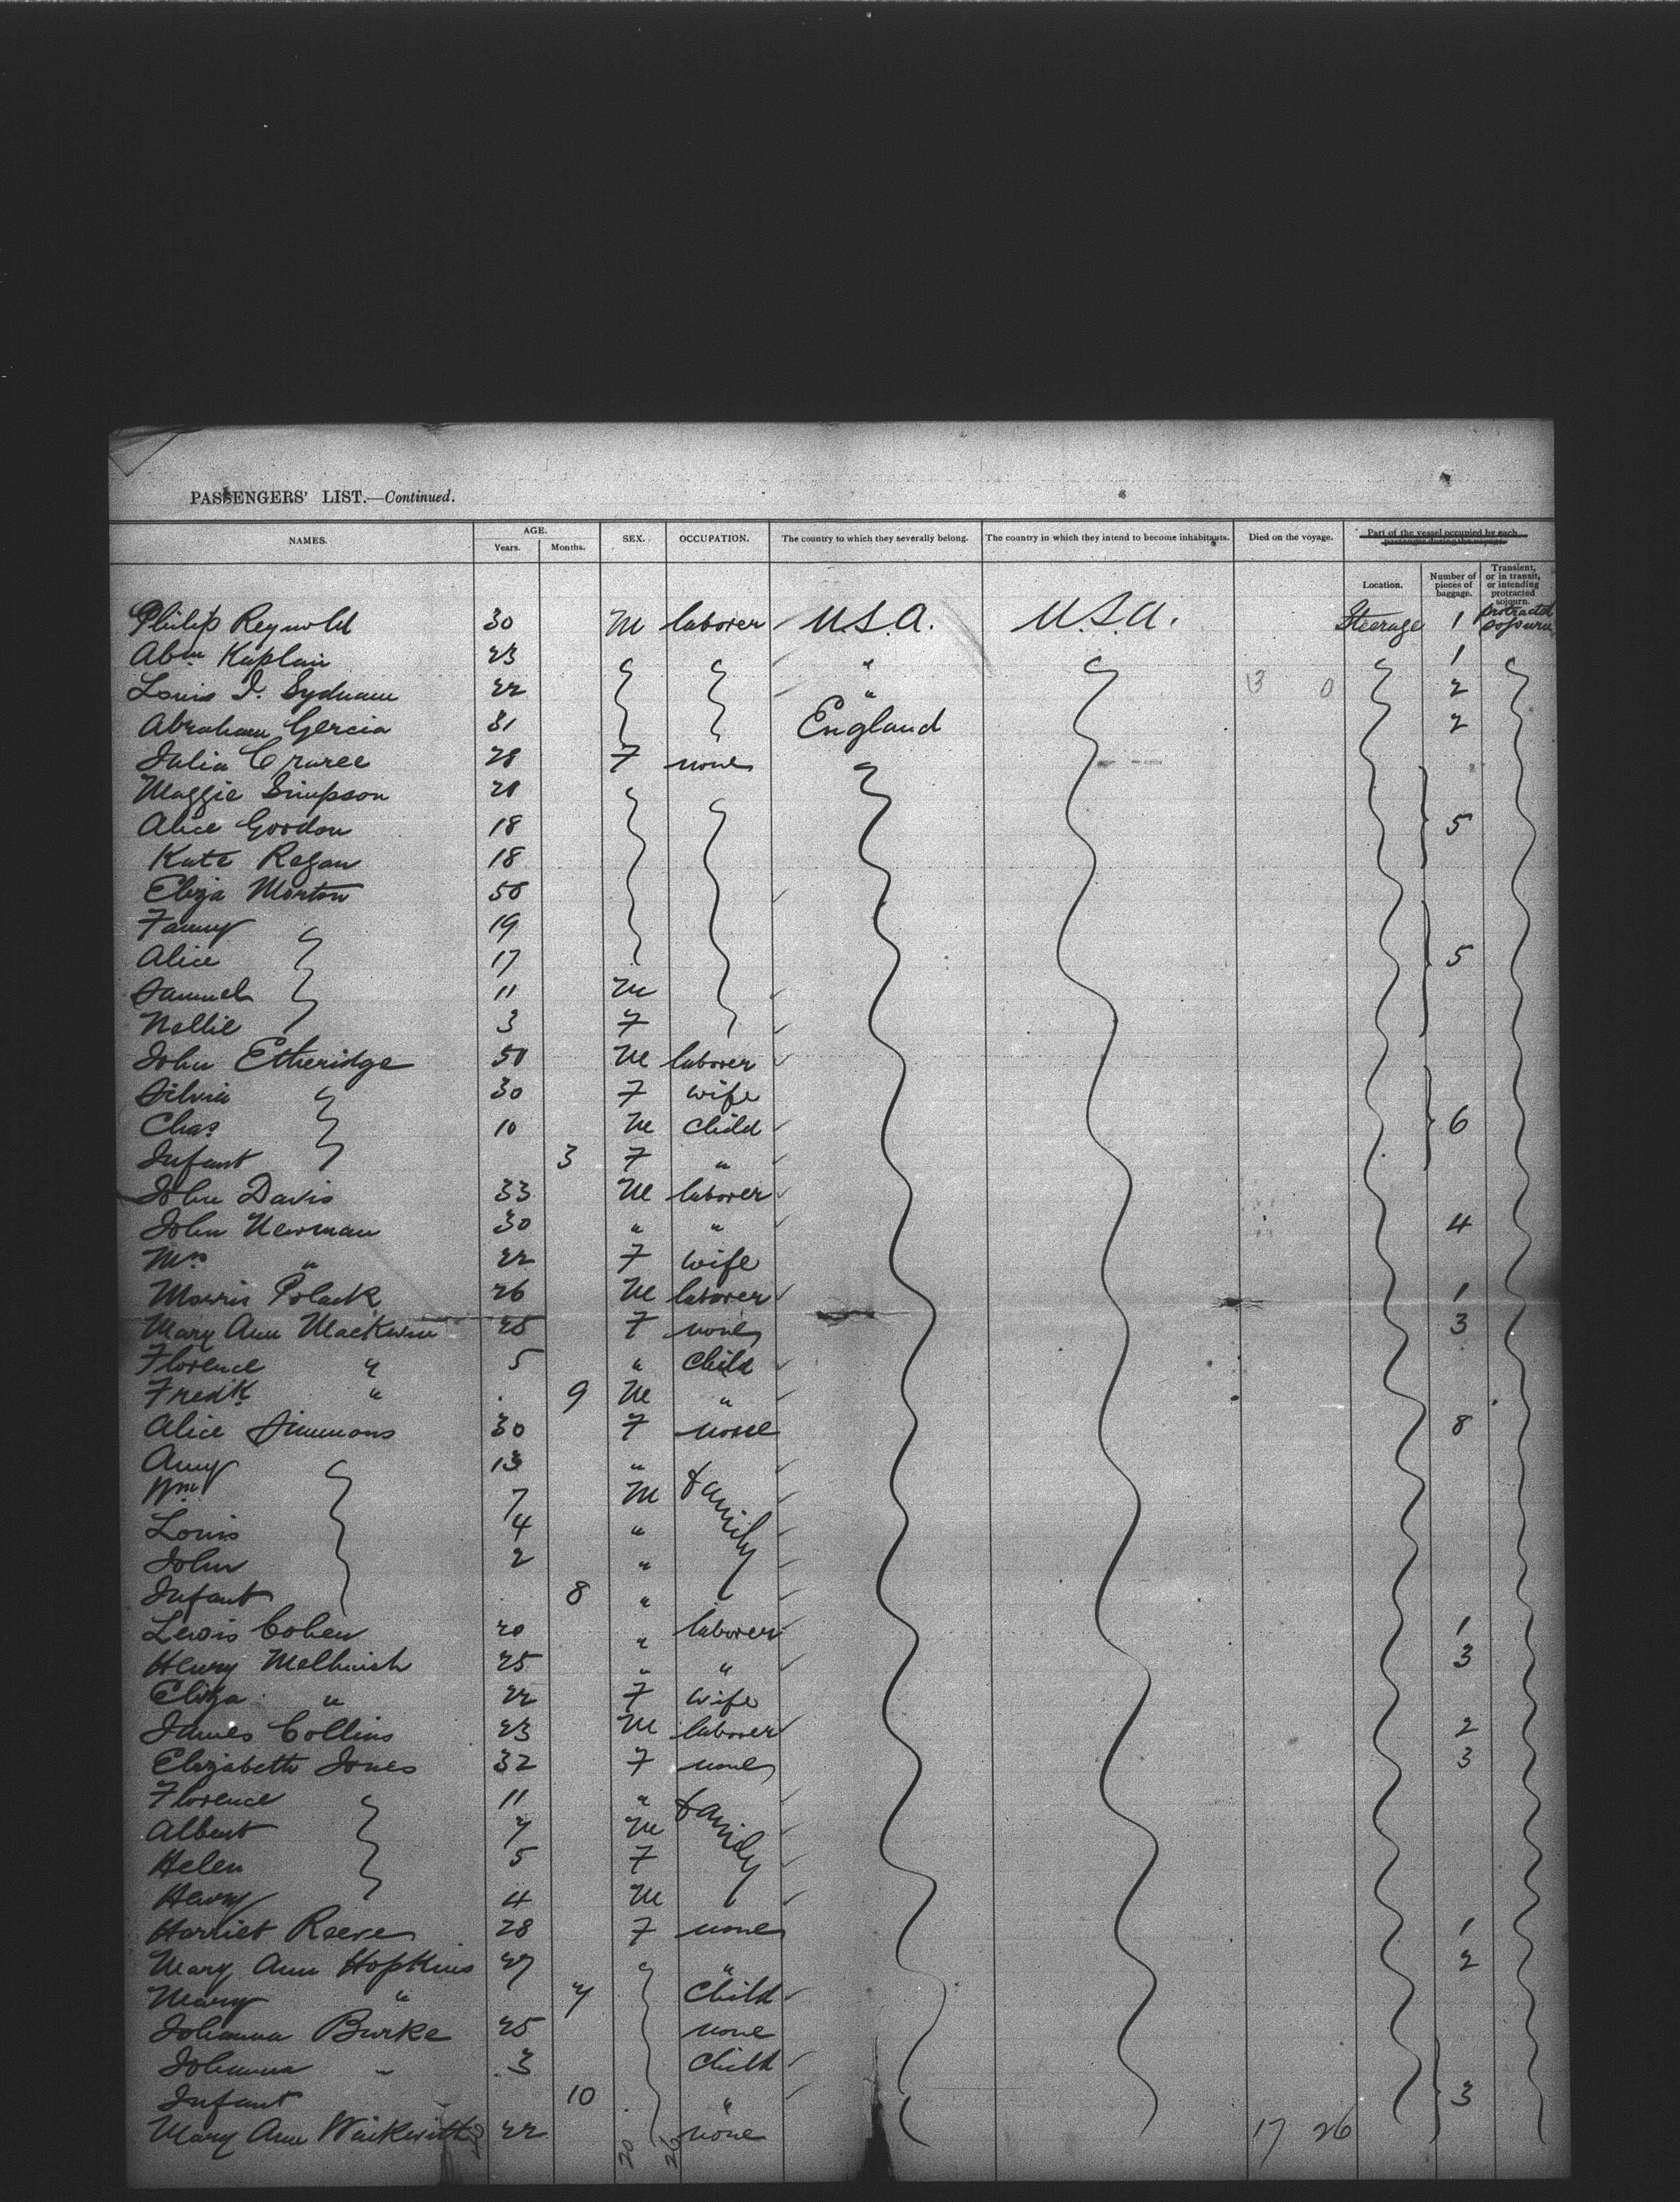 PASSENGERS' LIST.—Continued.
NAMES. AGE. Years. Months. SEX. OCCUPATION. The country to which they severally belong. The country in which they intend to become inhabitants. Died on the voyage. Part of the vessel occupied by each passenger during the voyage. Location. Number of pieces of baggage. Transient, or in transit, or intending protracted sojourn.
Philip Reynold 30 M laborer U.S.A. U.S.A. Steerage 1 protracted sojourn
Abm Kaplain 23 " 1
Louis I. 22 " 13 0 2
Abraham Gercia 31 England 2
Julia 28 F none
Maggie Simpson 21
Alice Gordon 18 5
Kate Regan 18
Eliza Morton 50
Fanny 19
Alice 17 5
Samuel 11 M
Nellie 3 F
John Etheridge 50 M laborer
Silvia 30 F wife
Chas 10 M Child 6
Infant 3 F "
John Davis 33 M laborer
John Newman 30 " " 4
Mrs " 22 F wife
Morris Polack 26 M laborer 1
Mary Ann 28 F none 3
Florence " 5 " Child
Fredk " 9 M "
Alice Simmons 30 F none 8
Amy 13 " family
Wm 7 M
Louis 4 "
John 2 "
Infant 8 "
Lewis Cohen 20 " laborer 1
Henry Melhuish 25 " " 3
Eliza " 22 F wife
James Collins 23 M laborer 2
Elizabeth Jones 32 F none 3
Florence 11 " family
Albert 7 M
Helen 5 F
Henry 4 M
Harriet Reeves 28 F none 1
Mary Ann Hopkins 27 " 2
Mary " 7 Child
Johanna Burke 25 none
Johanna " 3 Child
Infant 10 " 3
Mary Ann 22 none 17 26
20 26